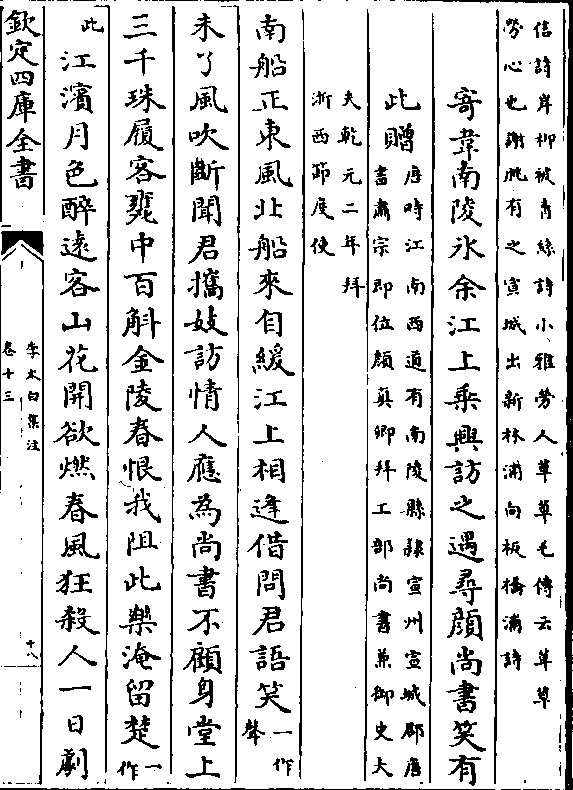 信詩岸柳被青絲詩小雅勞人草草毛傳云草草
勞心也謝朓有之宣城出新林浦向板橋浦詩
寄韋南陵氷余江上乘興訪之遇尋顔尚書笑有
此贈
唐時江南西道有南陵縣隸宣州宣城郡唐
書肅宗即位顔真卿拜工部尚書兼御史大
夫乾元二年拜
浙西節度使
南船正東風北船來自緩江上相逢借問君語笑一作聲
未了風吹斷聞君攜妓訪情人應為尚書不顧身堂上
三千珠履客甕中百斛金陵春恨我阻此樂淹留楚一作
此江濱月色醉遠客山花開欲燃春風狂殺人一日劇
欽定四庫全書
李太白集注
卷十三
十八